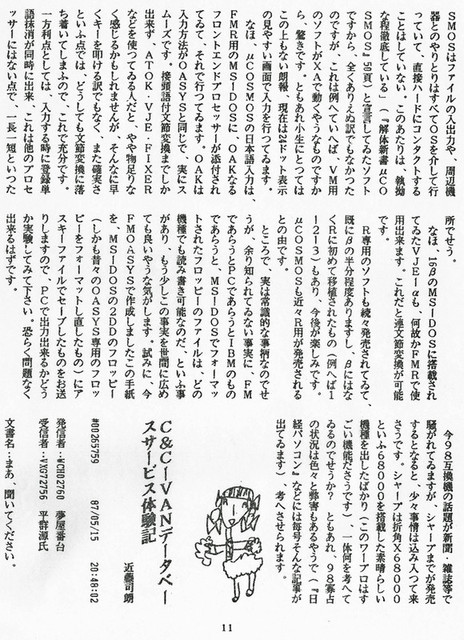 SMOSはファイルの入出力や、周辺機
器とのやりとりはすべてOSを介して行
っていて、直接ハードにコンタクトする
ことはしていない。このあたりは、執拗
な程徹底している」（「解体新書μCO
SMOS」50頁）と宣言してゐたソフト
ですから、全くありえぬ訳でもなかった
のですが、これは例へていへば、VM用
のソフトがXAで動くやうなものですか
ら、驚きです。ともあれ小生にとつては
この上もない朗報、現在は24ドット表示
の見やすい画面で入力を行つてゐます。
なほ、μCOSMOSの日本語入力は、
FMR用のMSIDOSに、OAKなる
フロントエンドプロセッサーが添付され
てゐて、それで行つてゐます。OAKは
入力方法がOASYSと同じで、実にス
ムーズです。接頭語付文節変換までしか
出来ず、ATOK、VJE、FIXER
などを使つてゐる人だと、やや物足りな
く感じるかもしれませんが、そんなに早
くキーを叩ける訳でもなく、また確実さ
といふ点では、どうしても文節変換に落
ち着いてしまふので、これで充分です。
一方利点としては、入力する時に登録単
語抹消が同時に出来、これは他のプロセ
ッサーにはない点で、一長一短といつた
所でせう。
なほ、16βのMSIDOSに搭載され
てゐたVJEIαも、何故かFMRで使
用出来ます。これだと連文節変換が可能
です。
R専用のソフトも続々発売されてゐて、
既にβの半分程度ありますし、βにはな
くRに初めて移植されたもの（例へば1
I2I3）もあり、今後が楽しみです。
μCOSMOSも近々R用が発売される
との由です。
ところで、実は常識的な事柄なのでせ
うが、余り知られてゐない事実に、FM
であらうとPCであらうとIBMのもの
であらうと、MSIDOSでフォーマッ
トされたフロッピーのファイルは、どの
機種でも読み書き可能なのだ、といふ事
があり、もう少しこの事実を世間に広め
ても良いやうな気がします。試みに、今
FMOASYSで作成しましたこの手紙
を、MSIDOSの2DDのフロッピー
（しかも昔々のOASYS専用のフロッ
ピーをフォーマットし直したもの）にア
スキーファイルでセーブしたものをお送
りしますので、PCで出力出来るかどう
か実験してみて下さい。恐らく問題なく
出来るはずです。
今98互換機の話題が新聞・雑誌等で
騒がれてゐますが、シャープまでが発売
するとなると、少々事情は込み入つて来
さうです。シャープは折角X68000
といふ68000を搭載した素晴らしい
機種を出したばかり（このワープロはす
ごい機能ださうです）、一体何を考へて
ゐるのでせうか？ ともあれ、98寡占
の状況は色々と弊害もあるやうで（「日
経パソコン」などには毎号そんな記事が
出てゐます）、考へさせられます。
C&C-VANデータベー
スサービス体験記
近藤司朗
#00265759 87/05/15 20:48:02
発信者：WCHB2760 夢屋番台
受信者：VXGY2756 平群源氏
文書名：まあ、聞いてください。
11